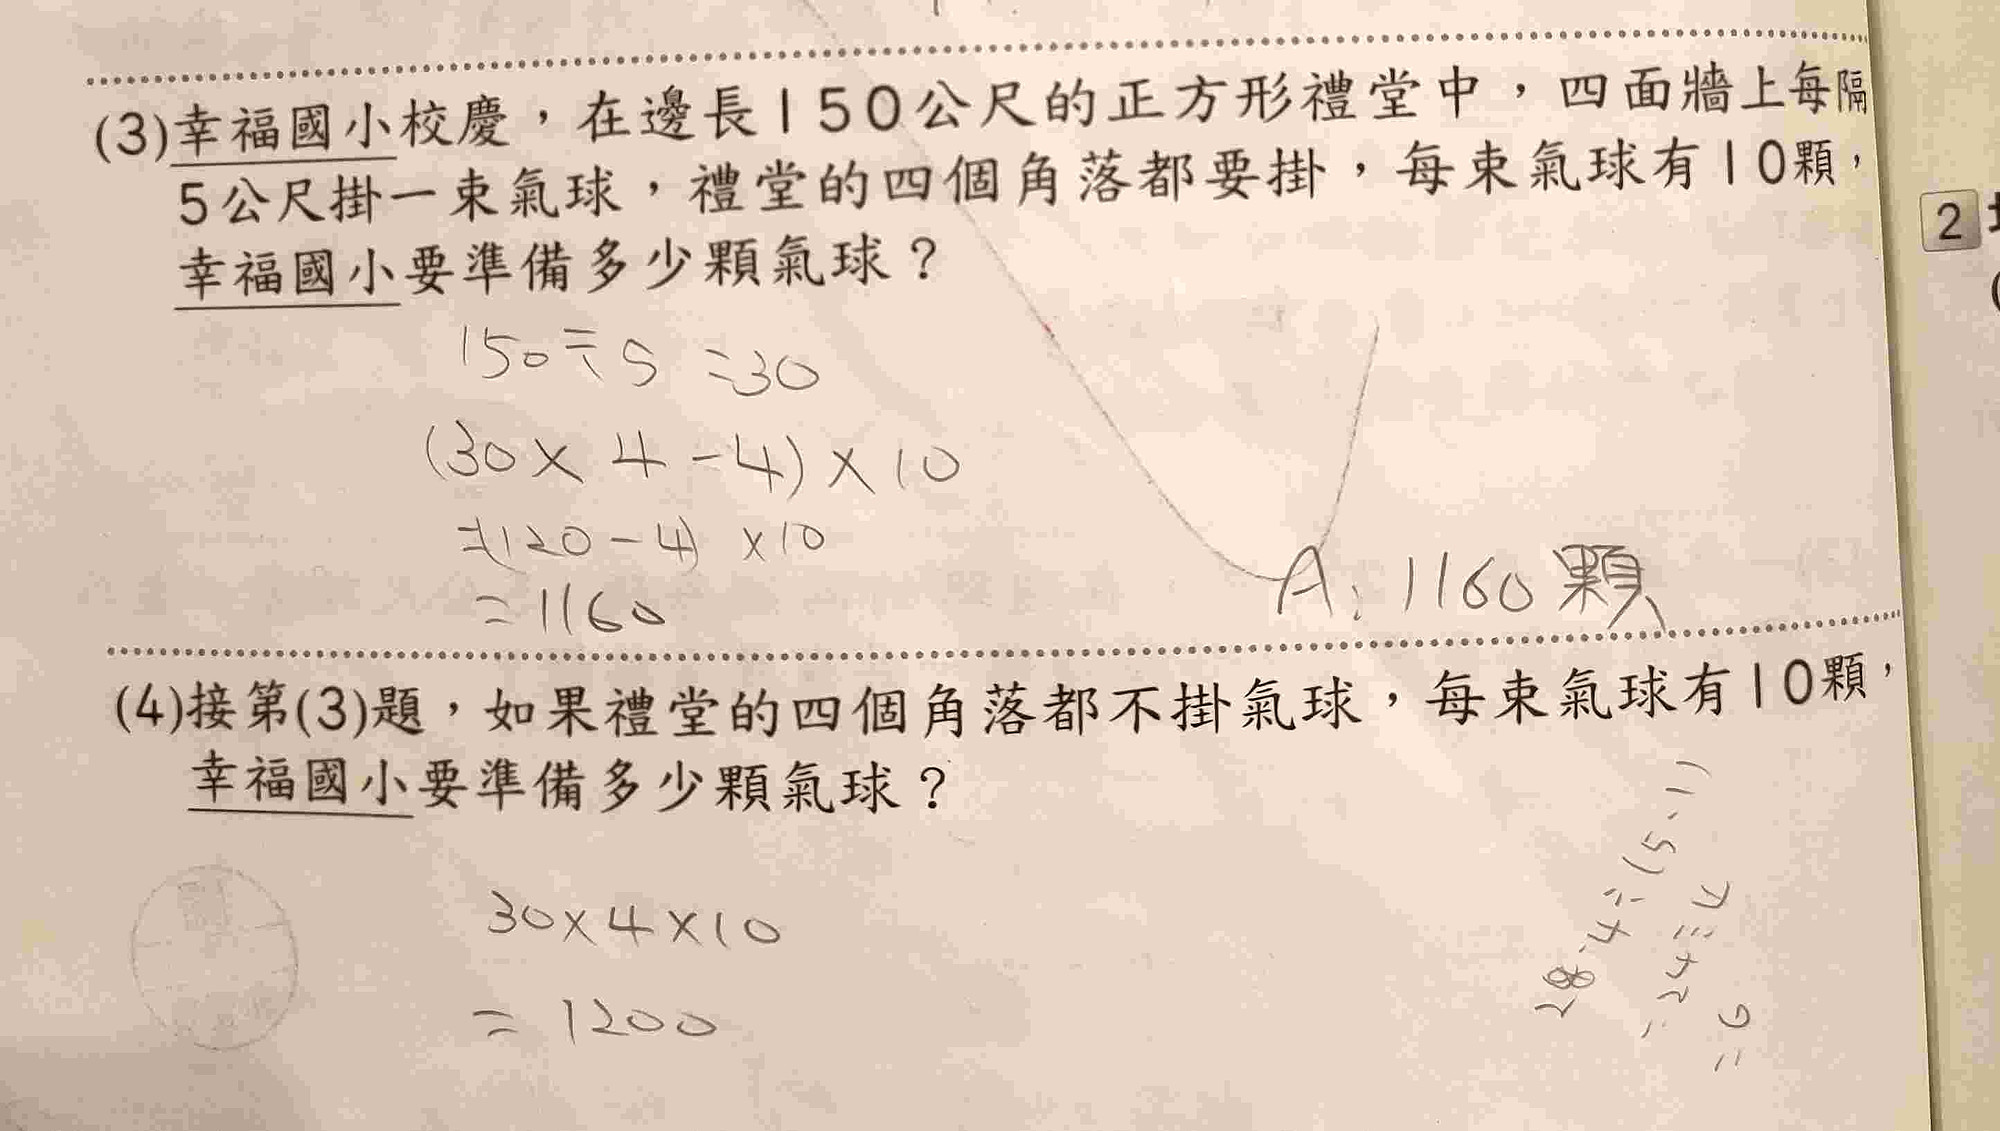 (3)幸福國小校慶，在邊長150公尺的正方形禮堂中，四面牆上每隔
5公尺掛一束氣球，禮堂的四個角落都要掛，每束氣球有10顆，
幸福國小要準備多少顆氣球？
150÷5=30
(30×4-4)×10
=(120-4)×10
=1160
A:1160顆
(4)接第(3)題，如果禮堂的四個角落都不掛氣球，每束氣球有10顆，
幸福國小要準備多少顆氣球？
30×4×10
=1200
28-4÷(5-1)
2